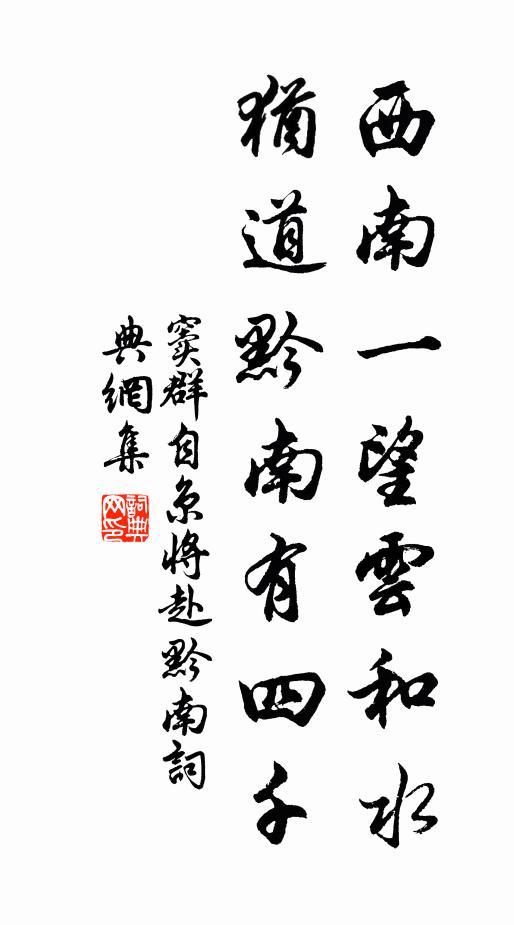 西南一望雲和水
猶道黔南有四千
竇群自京將赴黔南詞
典網集
詞典
网印